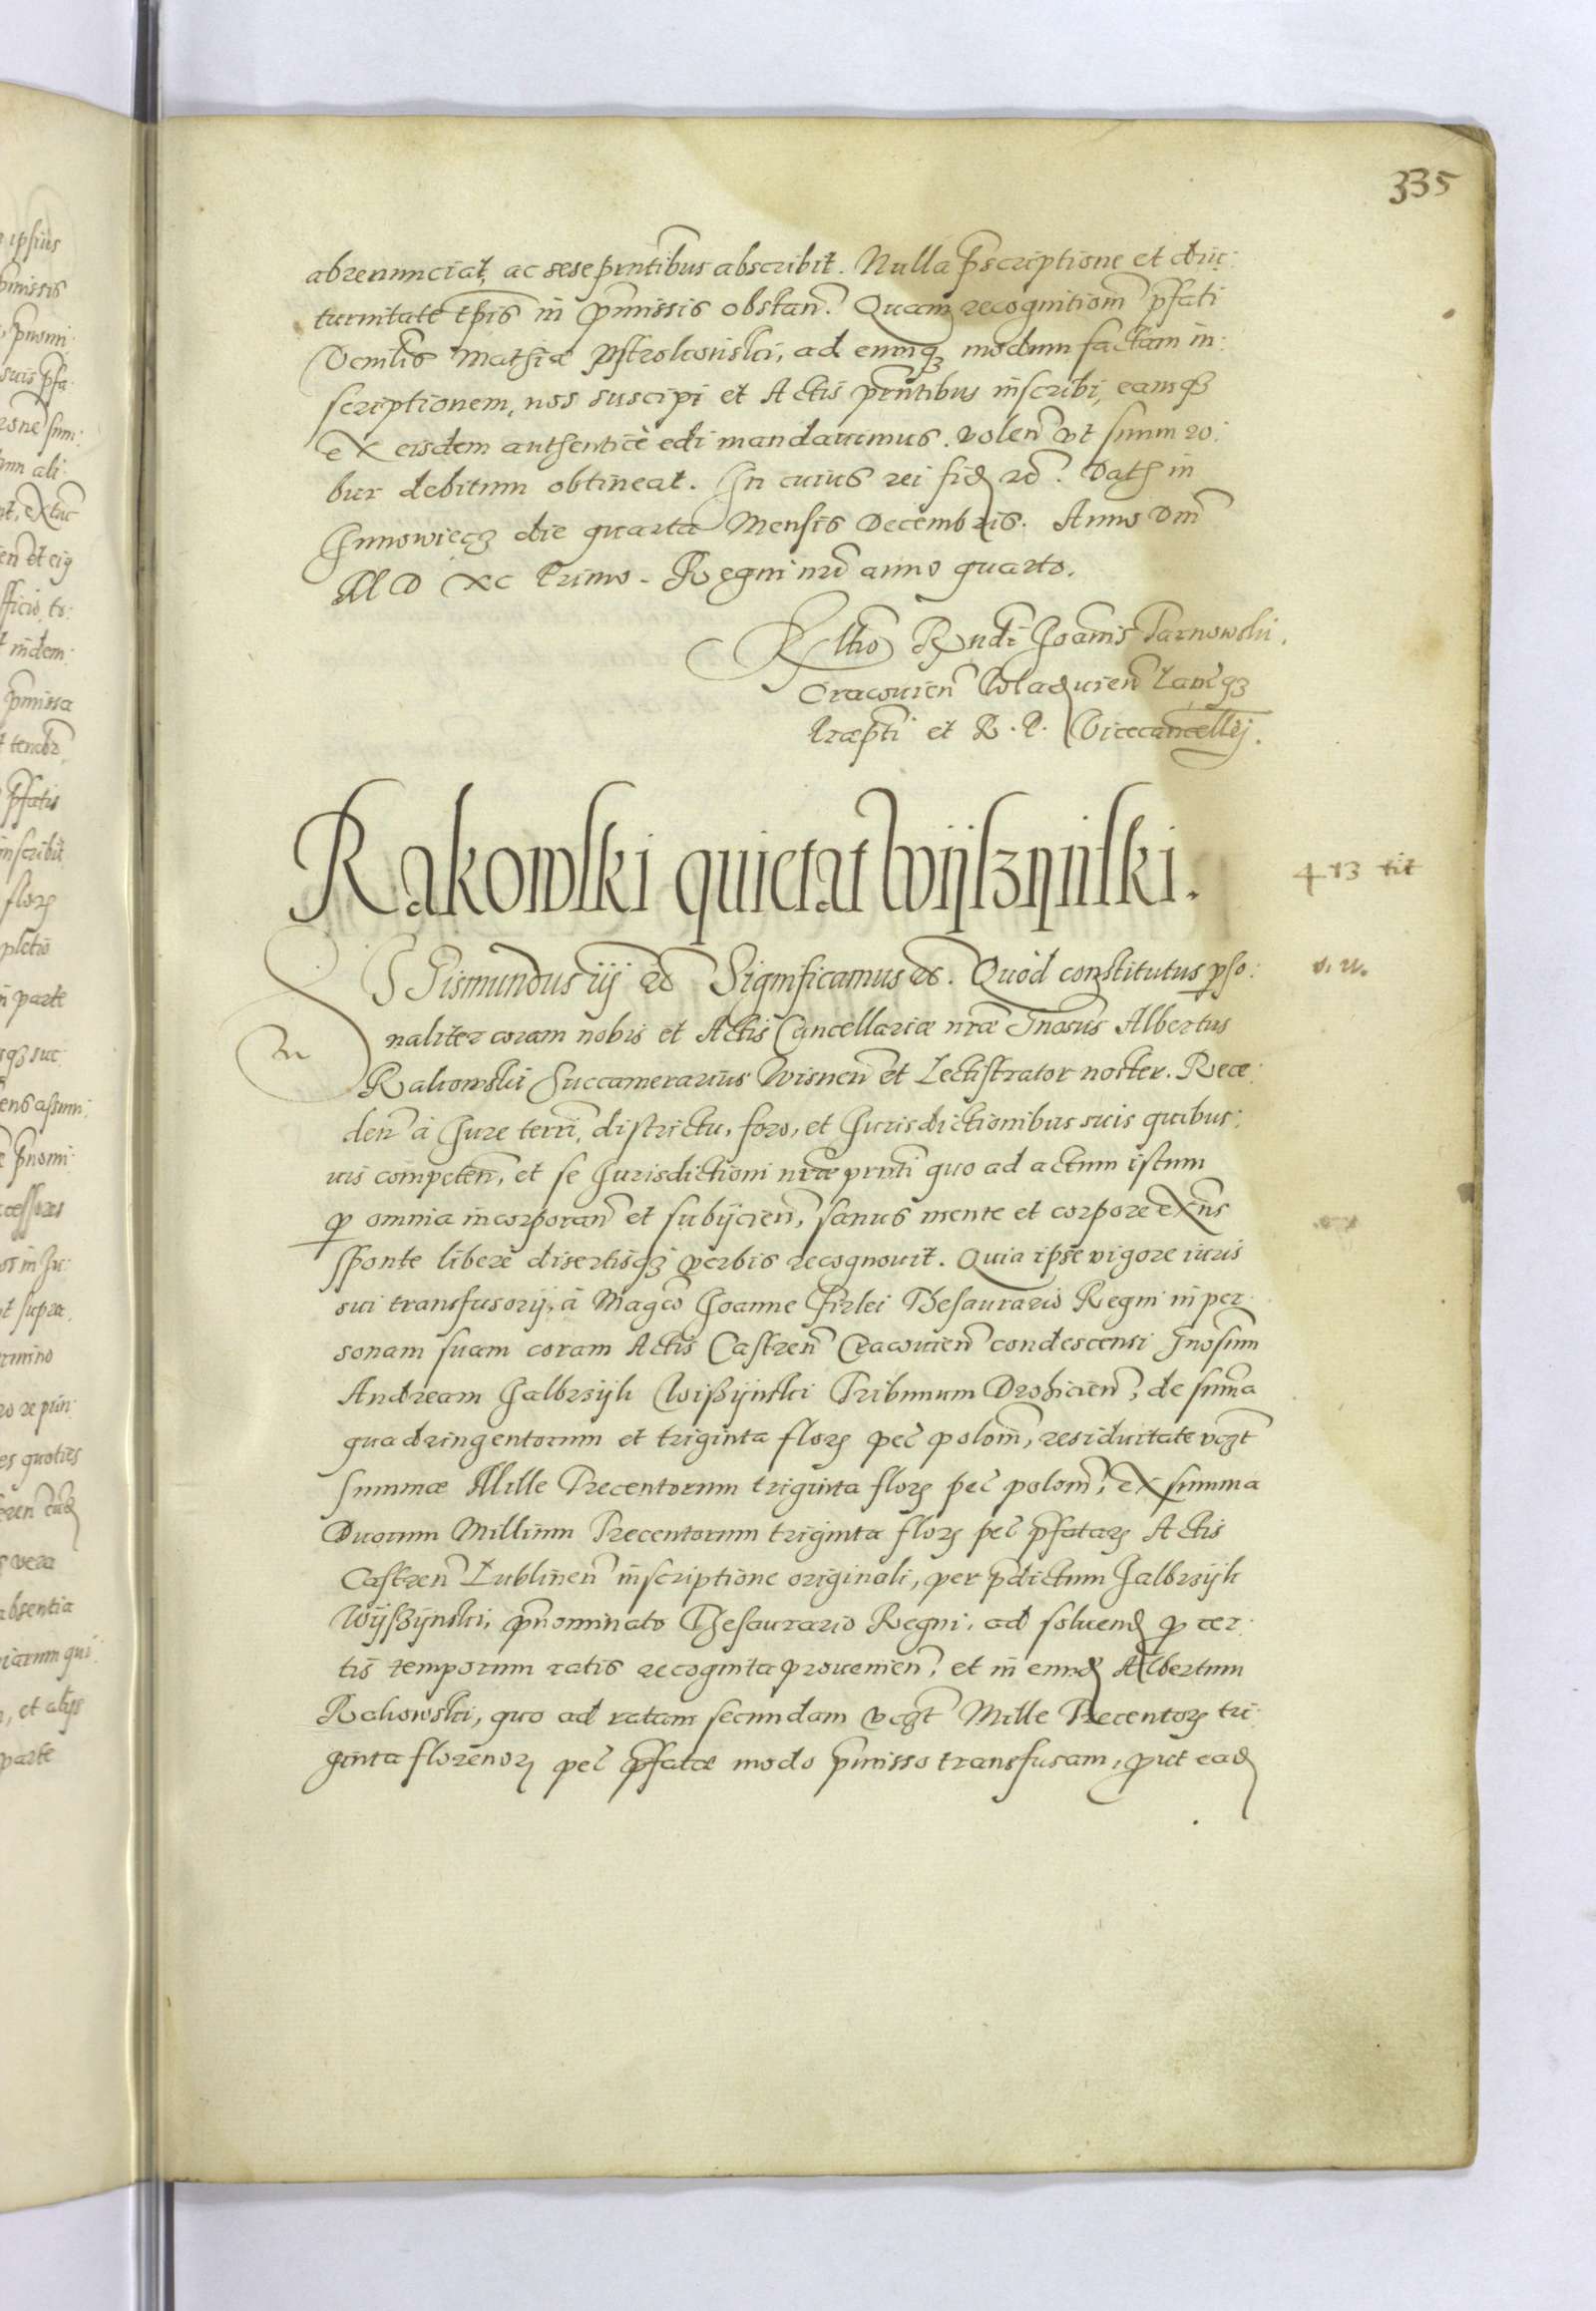 335
abrenunciat, ac sese pñtibus abscribit. Nulla p̃scriptione et diu:
turnitate tp̃is in p̃missis obstan̄. Quam recognitioñ p̃fati
Mathiæ Pstrokoński, ad eumq3 modum factam in:
scriptionem, nos suscipi et Actis pñtibus inscribi, eamq3
ex eisdem authenticè edi mandauimus. volen̄ vt suum ro:
bur debitum obtineat. In cuius rei fid rc̄. Dat in
Junowiecz die quarta Mensis Decembris. Anno Dñi
M D XC Primo. Regni nr̄i anno quarto.
Rltio Rndi Joannis Tarnowski.
Cracouien̄ Wladuien̄ Lanc̄q3
Præpti et R. P. Vicecancellrij.
Rakowski quietat Wijszijnski.
4 13 tit
SIGismundus iij rc̄ Significamus rc̄. Quòd constitutus pso:
v. u.
naliter coram nobis et Actis Cancellariæ nræ Gnosus Albertus
Rakowski Succamerarius Wisnen̄ et Lectistrator noster. Rece:
den̄ à Jure terrī, districtu, foro, et Jurisdictionibus suis quibus:
uis competen̄, et se Jurisdictioni nræ pñti quo ad actum istum
p omnia incorporan̄ et subijcien̄, sanus mente et corpore exñs
sponte liberè disertisq3 verbis recognouit. Quia ipse vigore iuris
sui transfusorij, à Mag̃co Joanne Firlei Thesaurario Regni in per:
sonam suam coram Actis Castren̄ Cracouien̄ condescensi Gnosum
Andream Jalbrzijk Wißijnski Tribunum Drohicien̄, de summa
quadringentorum et triginta flor pec̄ poloñ, residuitate vc3t
summæ Mille Trecentorum triginta flor pec̄ poloñ, ex summa
Duorum Millium Trecentorum triginta flor pec̄ p̃fatar Actis
Castren̄ Lublinen̄ inscriptione originali, per p̃dictum Jalbrzijk
Wijßijnski, p̃nominato Thesaurario Regni, ad soluend p cer:
tis temporum ratis recognita prouenien̄, et in eund Albertum
Rakowski, quo ad ratam secundam vc3t Mille Trecentor tri:
ginta florenor pec̄ p̃fatæ modo p̃misso transfusam, prout ead